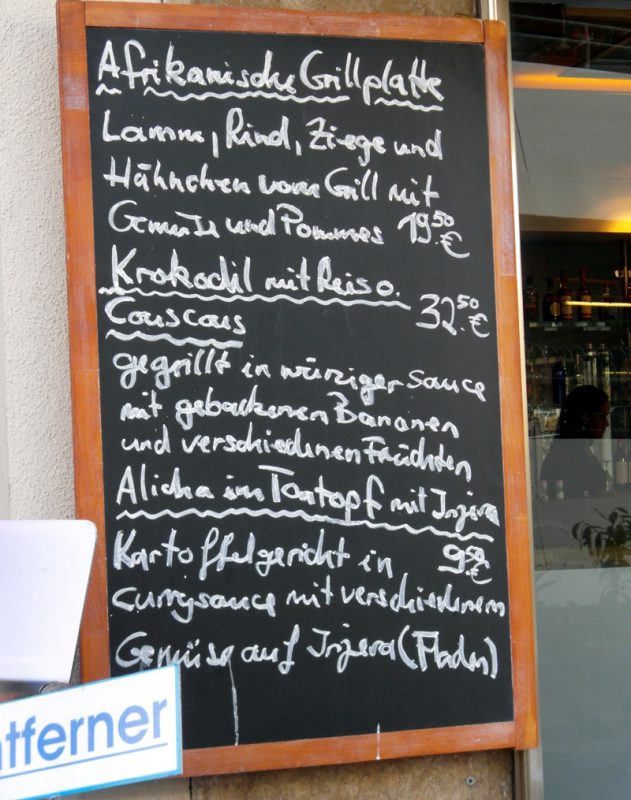 Afrikanische Grillplatte
Lamm, Rind, Ziege und
Hähnchen vom Grill mit
Gemüse und Pommes 19.50 €
Krokodil mit Reis o.
Couscous 32.50 €
gegrillt in würziger Sauce
mit gebackenen Bananen
und verschiedenen Früchten
Alicha im Tontopf mit Injera
Kartoffelgericht in 9.50 €
Currysauce mit verschiedenem
Gemüse auf Injera (Fladen)
ntferner